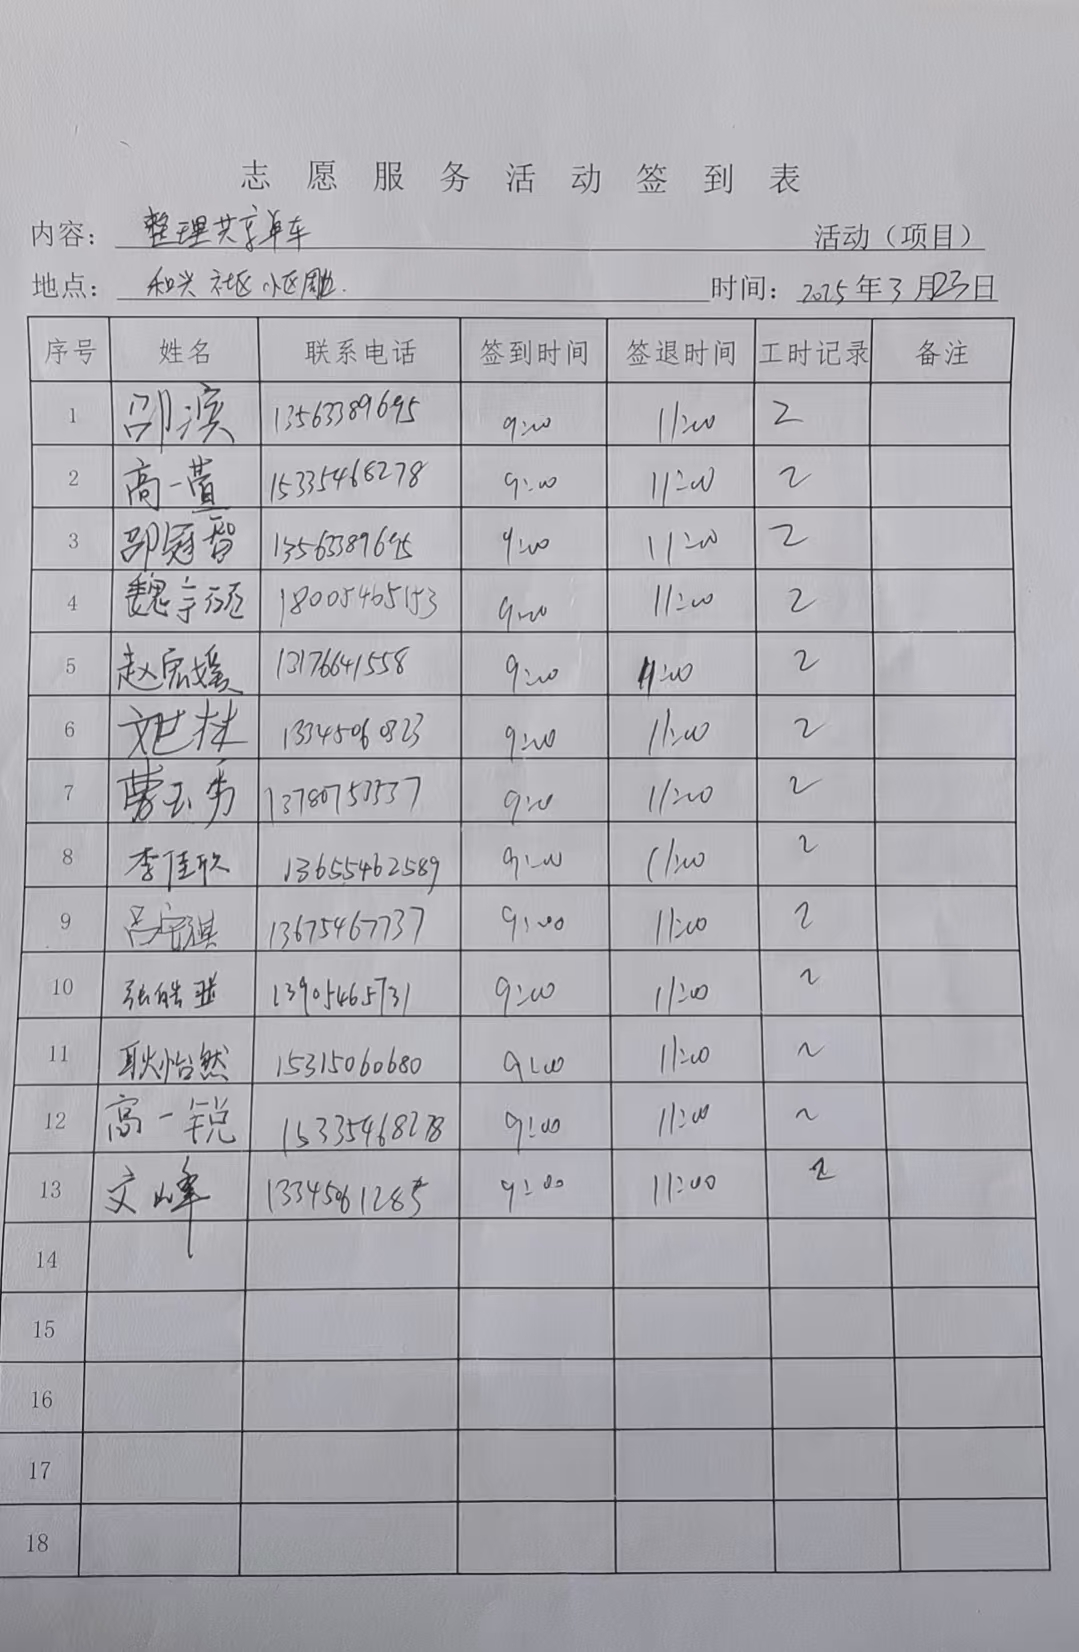 志愿服务活动签到表
内容：整理共享单车 活动（项目）
地点：和兴社区小区周边. 时间：2025年3月23日
序号 姓名 联系电话 签到时间 签退时间 工时记录 备注
1 邵滨 13563389695 9:00 11:00 2
2 高一萱 15335468278 9:00 11:00 2
3 邵冠智 13563389695 9:00 11:00 2
4 魏宇 18005465153 9:00 11:00 2
5 赵宏媛 13176641558 9:00 11:00 2
6 13345060823 9:00 11:00 2
7 曹玉秀 13780753537 9:00 11:00 2
8 李佳欣 13655462589 9:00 11:00 2
9 吕宇祺 13675467737 9:00 11:00 2
10 张皓 13905465731 9:00 11:00 2
11 耿怡然 15315060680 9:00 11:00 2
12 高一锐 15335468278 9:00 11:00 2
13 文峰 13345061285 9:00 11:00 2
14
15
16
17
18